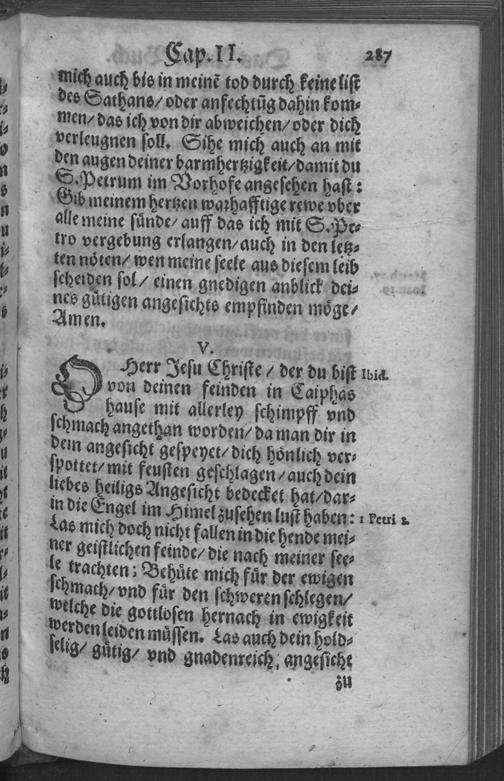 Cap. II. 287
mich auch bis in meinē tod durch keine list
des Sathans/ oder anfechtūg dahin kom-
men/ das ich von dir abweichen/ oder dich
verleugnen soll. Sihe mich auch an mit
den augen deiner barmhertzigkeit/ damit du
S. Petrum im Vorhofe angesehen hast:
Gib meinem hertzen warhafftige rewe vber
alle meine sünde/ auff das ich mit S. Pe-
tro vergebung erlangen/ auch in den letz-
ten nöten/ wen meine seele aus diesem leib
scheiden sol/ einen gnedigen anblick dei-
nes gütigen angesichts empfinden möge/
Amen.
V.
O Herr Jesu Christe/ der du bist Ibid.
von deinen feinden in Caiphas
hause mit allerley schimpff vnd
schmach angethan worden/ da man dir in
dein angesicht gespeyet/ dich hönlich ver-
spottet/ mit feusten geschlagen/ auch dein
liebes heiligs Angesicht bedecket hat/ dar-
in die Engel im Himel zusehen lust haben: 1 Petri 1.
Las mich doch nicht fallen in die hende mei-
ner geistlichen feinde/ die nach meiner see-
le trachten; Behüte mich für der ewigen
schmach/ vnd für den schweren schlegen/
welche die gottlosen hernach in ewigkeit
werden leiden müssen. Las auch dein hold-
selig/ gütig/ vnd gnadenreich, angesicht
zu